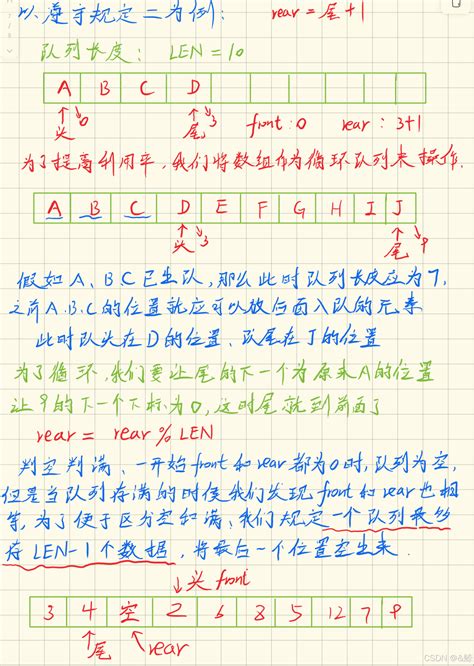 以遵守规定二为例: rear = 尾 + 1
队列长度: LEN = 10
A B C D
头 0 尾 3 front: 0 rear: 3+1
为了提高利用率,我们将数组作为循环队列来操作.
A B C D E F G H I J
头 3 尾 9
假如 A、B、C 已出队,那么此时队列长度应为7,
之前A.B.C的位置就应可以放后面入队的元素
此时队头在D的位置、队尾在J的位置
为了循环,我们要让尾的下一个为原来A的位置
让9的下一个下标为0,这时尾就到前面了
rear = rear % LEN
判空判满、一开始front和rear都为0时,队列为空,
但是当队列存满的时候我们发现front和rear也相
等,为了便于区分空和满、我们规定一个队列最多
存LEN-1个数据,将最后一个位置空出来.
头 front
3 4 空 2 6 8 5 12 7 9
尾 rear